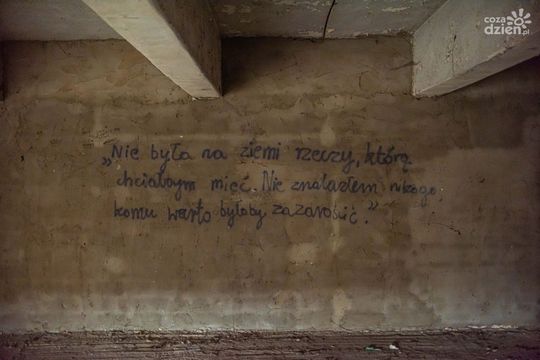 coza
dzien.pl
„Nie była na ziemi rzeczy, którą
chciałbym mieć. Nie znalazłem nikogo,
komu warto byłoby zazdrościć."